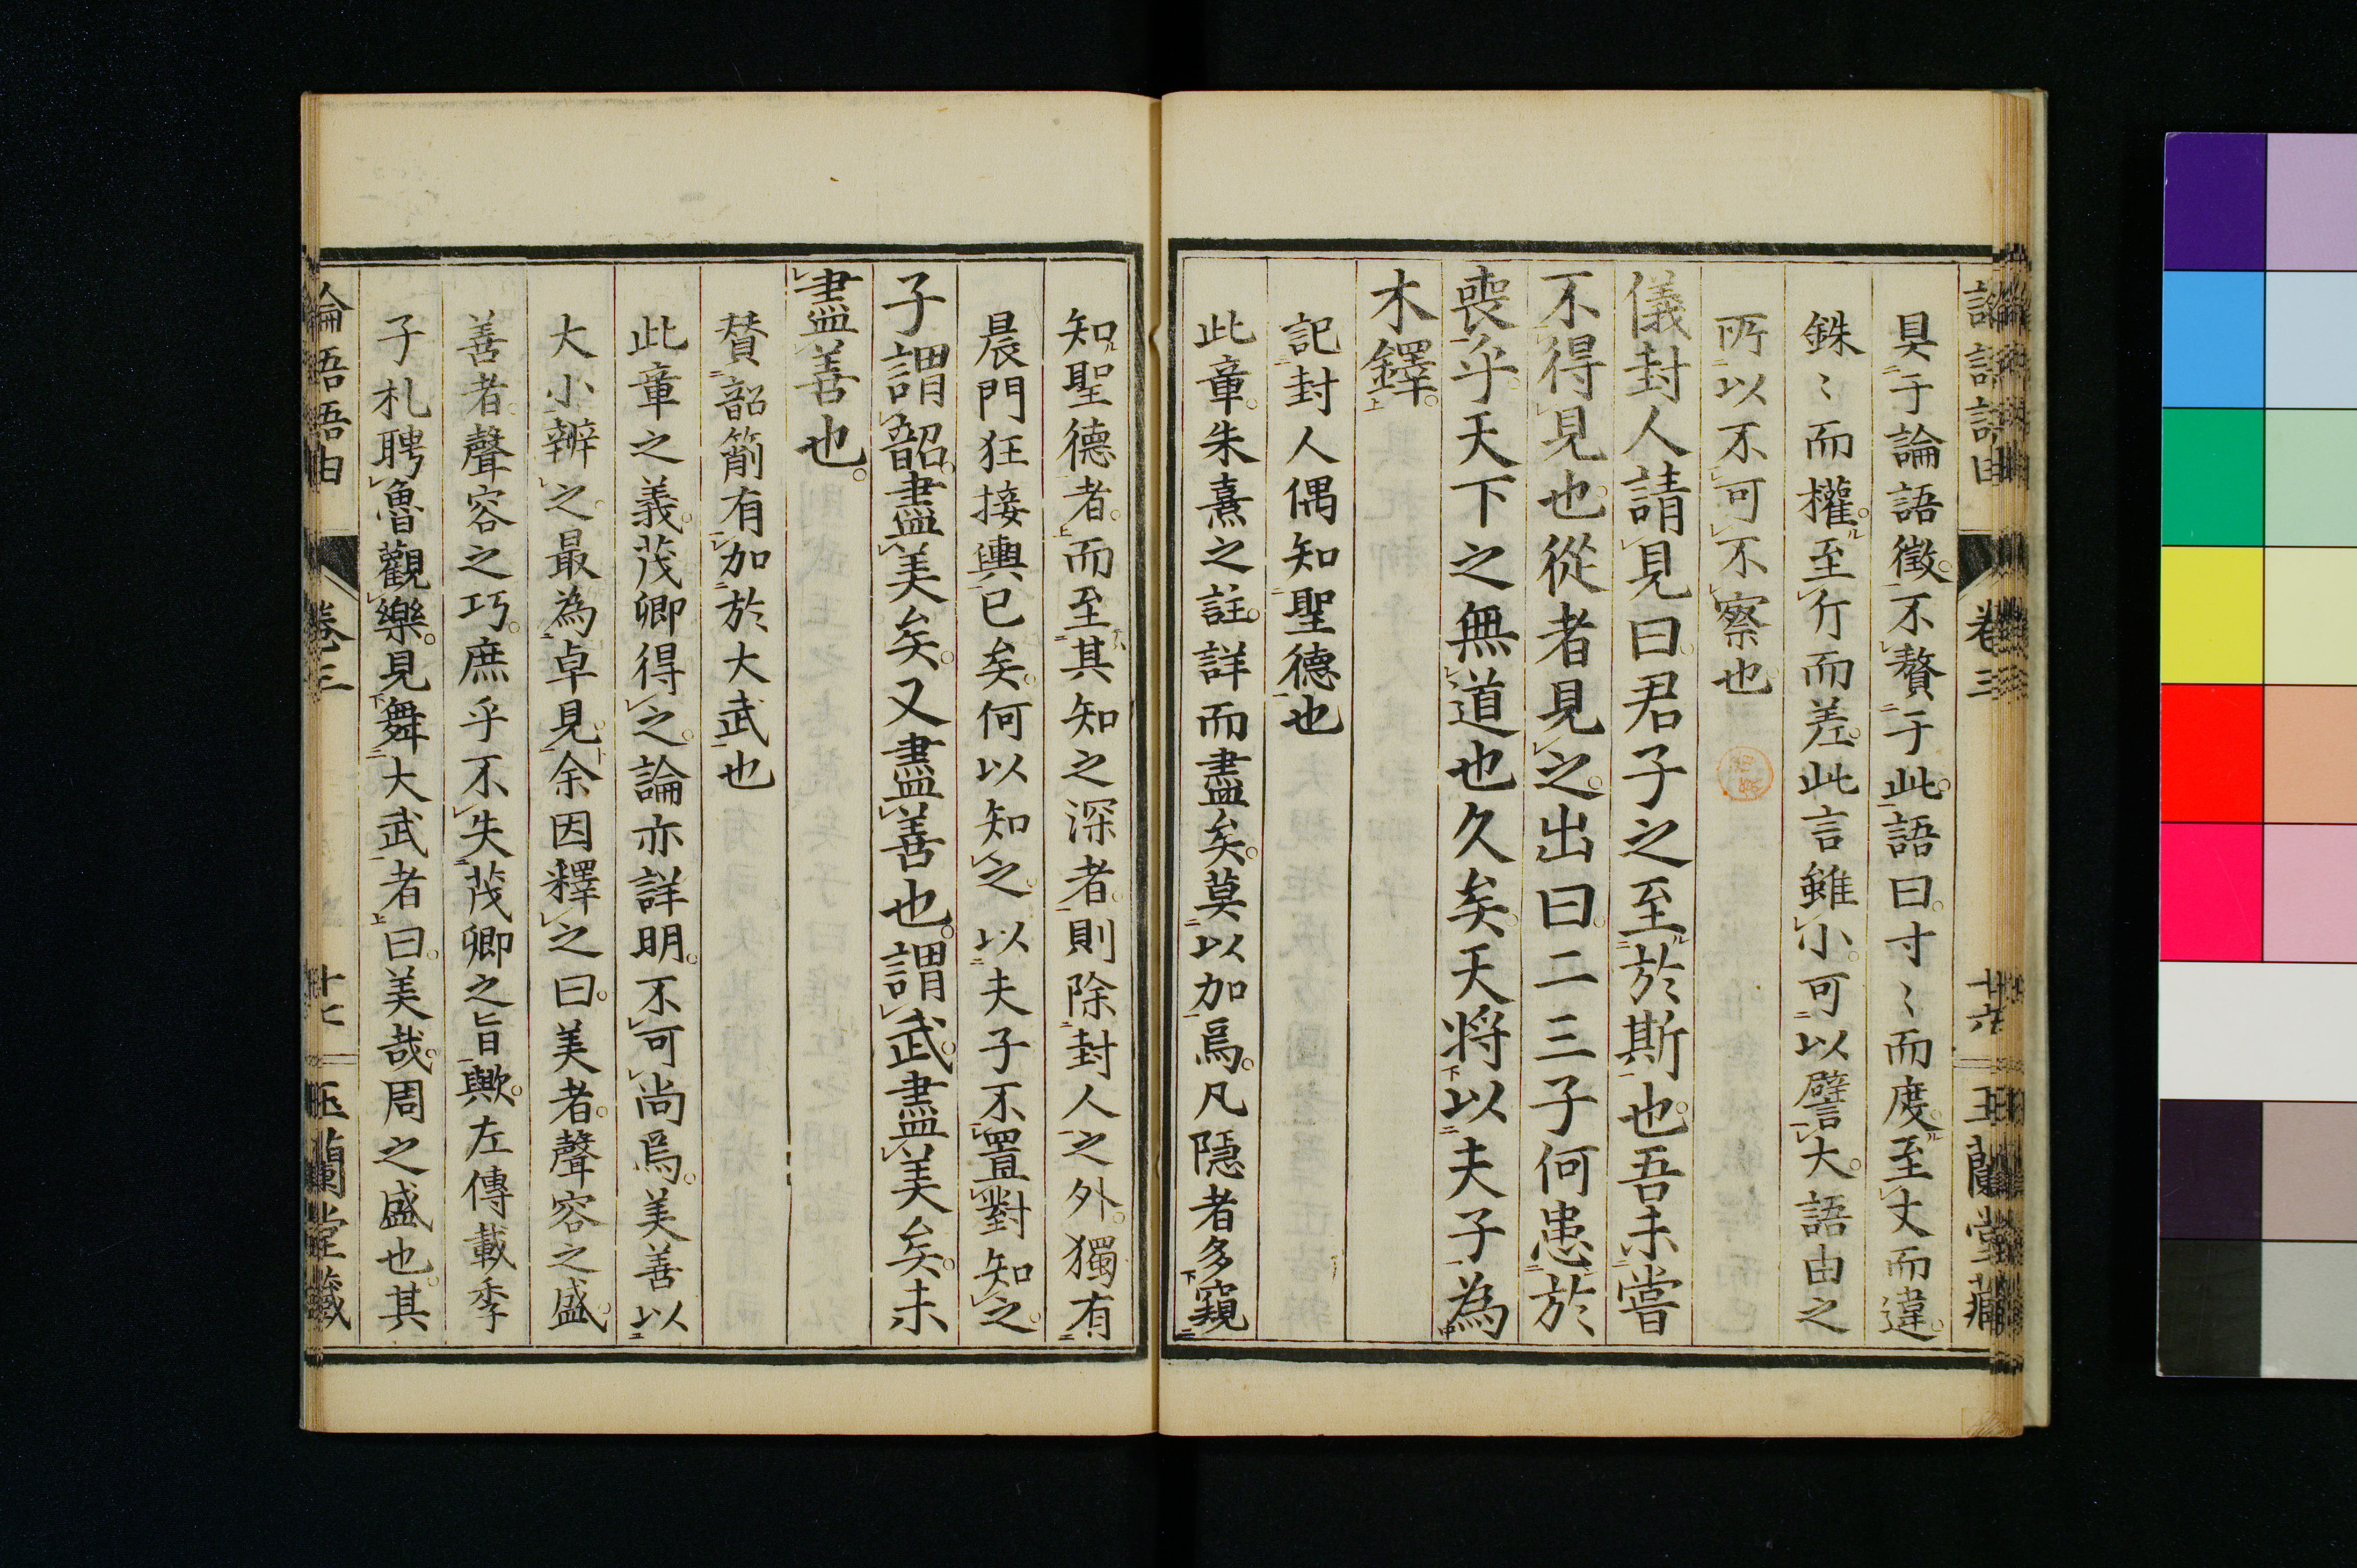 論語語由
卷三
廿六
玉蘭堂藏
具于論語徵。不贅于此。語曰。寸〻而度。至丈而違。
銖〻而權。至斤而差。此言雖小。可以譬大。語由之
所以不可不察也
儀封人請見曰。君子之至於斯也。吾未嘗
不得見也。從者見之。出曰。二三子何患於
喪乎。天下之無道也久矣。天將以夫子為
木鐸。
記封人偶知聖德也
此章。朱熹之註。詳而盡矣。莫以加焉。凡隱者多窺
知聖德者。而至其知之深者。則除封人之外。獨有
晨門狂接輿已矣。何以知之。以夫子不置對知之。
子謂韶。盡美矣。又盡善也。謂武。盡美矣。未
盡善也。
賛韶箾有加於大武也
此章之義。茂卿得之。論亦詳明。不可尚焉。美善以
大小辨之。最為卓見。余因釋之曰。美者。聲容之盛。
善者。聲容之巧。庶乎不失茂卿之旨歟。左傳載季
子札聘魯觀樂。見舞大武者。曰。美哉。周之盛也。其
論語語由
卷三
十七
玉蘭堂藏